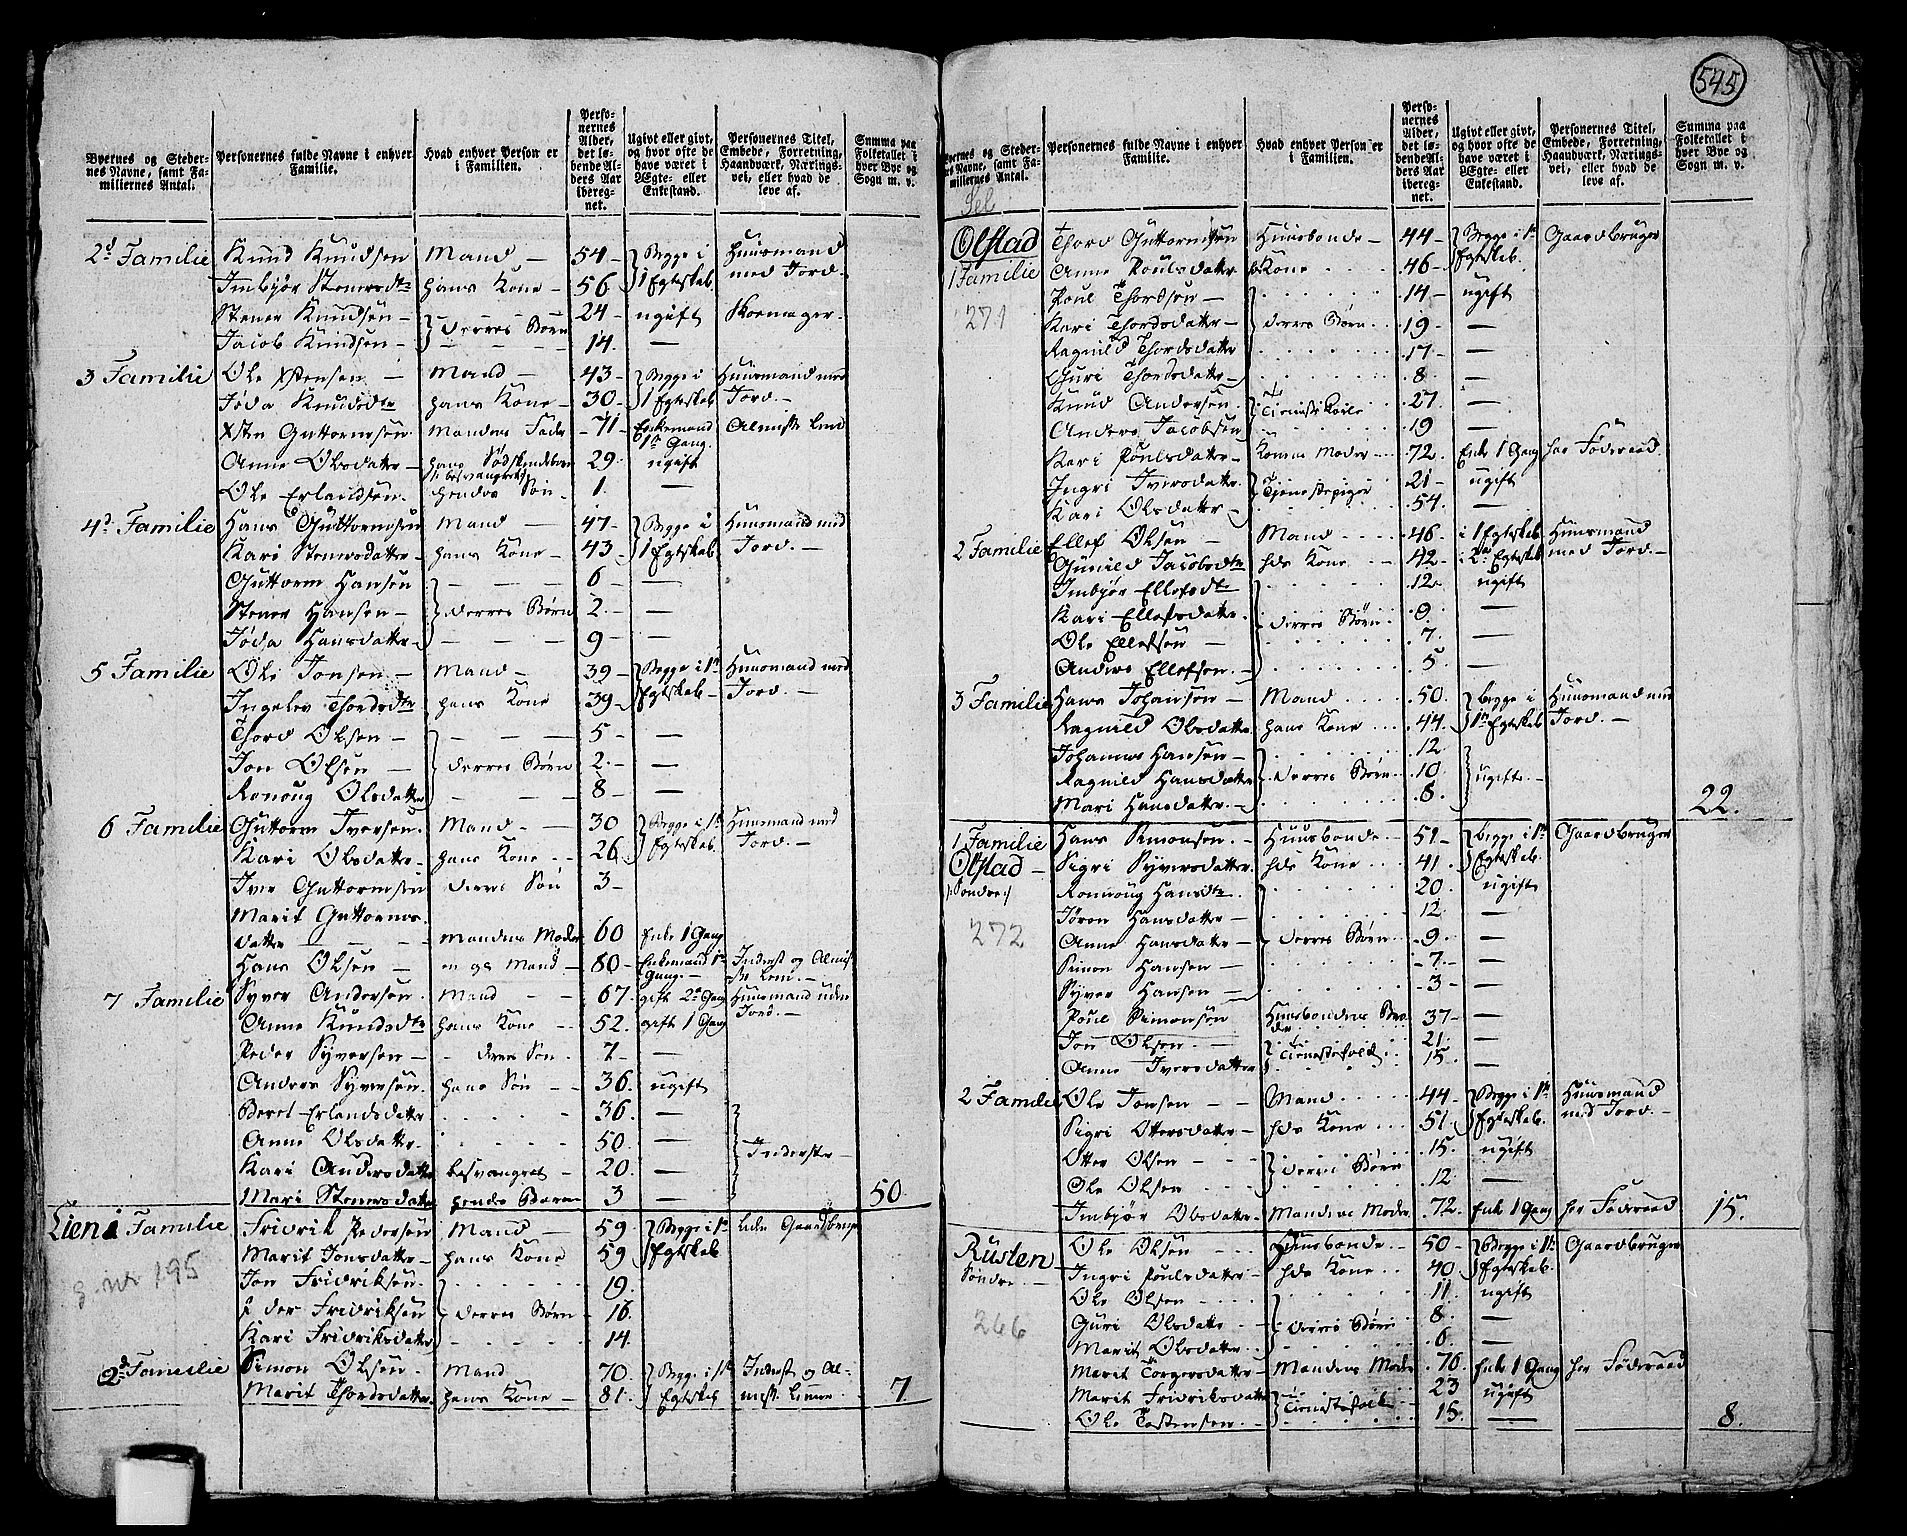 545
Byernes og Stedernes Navne, samt Familiernes Antal.
Personernes fulde Navne i enhver Familie.
Hvad enhver Person er i Familien.
Personernes Alder, det løbende Alders Aar iberegnet.
Ugivt eller givt, og hvor ofte de have været i Ægte- eller Enkestand.
Personernes Titel, Embede, Forretning, Haandværk, Næringsvei, eller hvad de leve af.
Summa paa Folketallet i hver Bye og Sogn m. v.
2d Familie Knud Knudsen Mand — 54 — Begge i 1 Egteskab. Huusmand med Jord.
Imbjør Stenersdtr hans Kone — 56
Stener Knudsen — derres Børn 24 — ugift Skomager.
Jacob Knudsen — 14. —
3 Familie Ole Xstensen — Mand — 43 — Begge i 1 Egteskab Huusmand med Jord. —
Jøda Knudsdtr hans Kone — 30 —
Xsten Guttormsen Mandens Fader — 71 — Enkemand 1te Gang. Almisse Lem
Anne Olsdatter — hans Sødskendebarn besvangret 29. ugift
Ole Erlandsen. hendes Søn — 1. —
4d Familie Hans Guttormsen Mand — 47 — Begge i 1 Egteskab. Huusmand med Jord. —
Kari Stenersdatter — hans Kone — 43 —
Guttorm Hansen 6 — —
Stener Hansen — derres Børn 2. — —
Jøda Hansdatter — 9 — —
5 Familie Ole Jonsen — Mand — 39 — Begge i 1te Egteskab — Huusmand med Jord. —
Ingelev Thordsdtr hans Kone 39 —
Thord Olsen — 5 — —
Jon Olsen — derres Børn 2. — —
Ronnoug Olsdatter 8 — —
6 Familie Guttorm Iversen. Mand — 30 Begge i 1te Egteskab. Huusmand med Jord. —
Kari Olsdatter — hans Kone 26.
Iver Guttormsen derres Søn 3 —
Marit Guttorms-
datter — Mandens Moder 60 Enke 1 Gang
Hans Olsen — en gl Mand — 80 — Enkemand 1te Gang. — Inderst og Almisse Lem. —
7 Familie Syver Andersen. Mand — 67. gift 2den Gang Huusmand uden Jord. —
Anne Knudsdtr hans Kone 52. gift 1 Gang
Peder Syversen — deres Søn. 7 — —
Anders Syversen. hans Søn — 36. ugift
Beret Erlandsdatter 36. —
Anne Olsdatter. 50. — Inderster —
Kari Andersdatter besvangret — 20. —
Mari Stenersdatter hendes Barn 3 — 50.
Lien 1 Familie Fridrik Pedersen Mand — 59 Begge i 1te Egteskab lidn Gaardbrug
Marit Jonsdatter — hans Kone 59
g. nr 195
Jon Fridriksen. 19.
Peder Fridriksen derres Børn 16.
Kari Fridriksdatter 14.
2d Familie Simon Olsen. Mand 70. Begge i 1te Egteskab Inderst og Almisse Lemer.
Marit Thordsdatter. hans Kone — 81. 7
Byernes og Stedernes Navne, samt Familiernes Antal.
Personernes fulde Navne i enhver Familie.
Hvad enhver Person er i Familien.
Personernes Alder, det løbende Alders Aar iberegnet.
Ugivt eller givt, og hvor ofte de have været i Ægte- eller Enkestand.
Personernes Titel, Embede, Forretning, Haandværk, Næringsvei, eller hvad de leve af.
Summa paa Folketallet i hver Bye og Sogn m. v.
Sel
Olstad Thord Guttormsen Huusbonde — 44 — Begge i 1te Egteskab. Gaardbruger
1 Familie Anne Poulsdatter hs Kone 46 —
Poul Thordsen — 14 — ugift
271
Kari Thordsdatter — derres Børn. 19 — —
Ragnild Thordsdatter 17 — —
Guri Thordsdatter — 8. —
Knud Andersen. Tienestkarle 27. —
Anders Jacobsen 19 —
Kari Poulsdatter — Konens Moder 72. Enke 1 Gang har Føderaad
Ingri Iversdatter Tienestepiger 21 — ugift
Kari Olsdatter — 54. —
2 Familie Ellef Olsen — Mand 46 — i 1 Egteskab Huusmand med Jord. —
Gunild Jacobsdtr hds Kone 42 — i 2d Egteskab
Imbjør Ellefsdtr 12. ugift
Kari Ellefsdatter. derres Børn 9. —
Ole Ellefsen 7. —
Anders Ellefsen. 5. —
3 Familie Hans Johansen — Mand 50. Begge i 1te Egteskab. Huusmand med Jord. —
Ragnild Olsdatter hans Kone 44.
Johannes Hansen — 12.
Ragnild Hansdatter derres Børn 10. ugifte. —
Mari Hansdatter. — 8. 22.
1 Familie Hans Simonsen. — Huusbonde 51 — Begge i 1te Egteskab. Gaardbruger
Olstad — Sigri Syversdatter. hds Kone 41.
/: Søndre :/ Ronnoug Hansdtr 20. ugift
Jøren Hansdatter — 12. —
272
Anne Hansdatter — derres Børn. 9 — —
Simon Hansen — 7. — —
Syver Hansen — 3 — —
Poul Simonsen Huusbondens Broder 37 — —
Jon Olsen — — Tienestefolk 21. —
Anne Iversdatter 15. —
2 Familie Ole Jonsen — — Mand 44 — Begge i 1te Egteskab. Huusmand med Jord. —
Sigri Ottersdatter — hds Kone 51.
Otter Olsen — derres Børn 15. ugift
Ole Olsen 12. —
Imbjør Olsdatter. Mandens Moder. 72. Enke 1 Gang har Føderaad 15.
Rusten Ole Olsen — Huusbonde 50 — Begge i 1te Egteskab. Gaardbruger
Søndre. — Ingri Poulsdatter — hds Kone 40
Ole Olsen 11. ugift
266
Guri Olsdatter derres Børn 8. —
Marit Olsdatter. 6. —
Marit Torgersdatter Mandens Moder 76. Enke 1 Gang har Føderaad
Marit Fridriksdatter Tienestefolk 23 ugift
Ole Tostensen — 15. — 8.